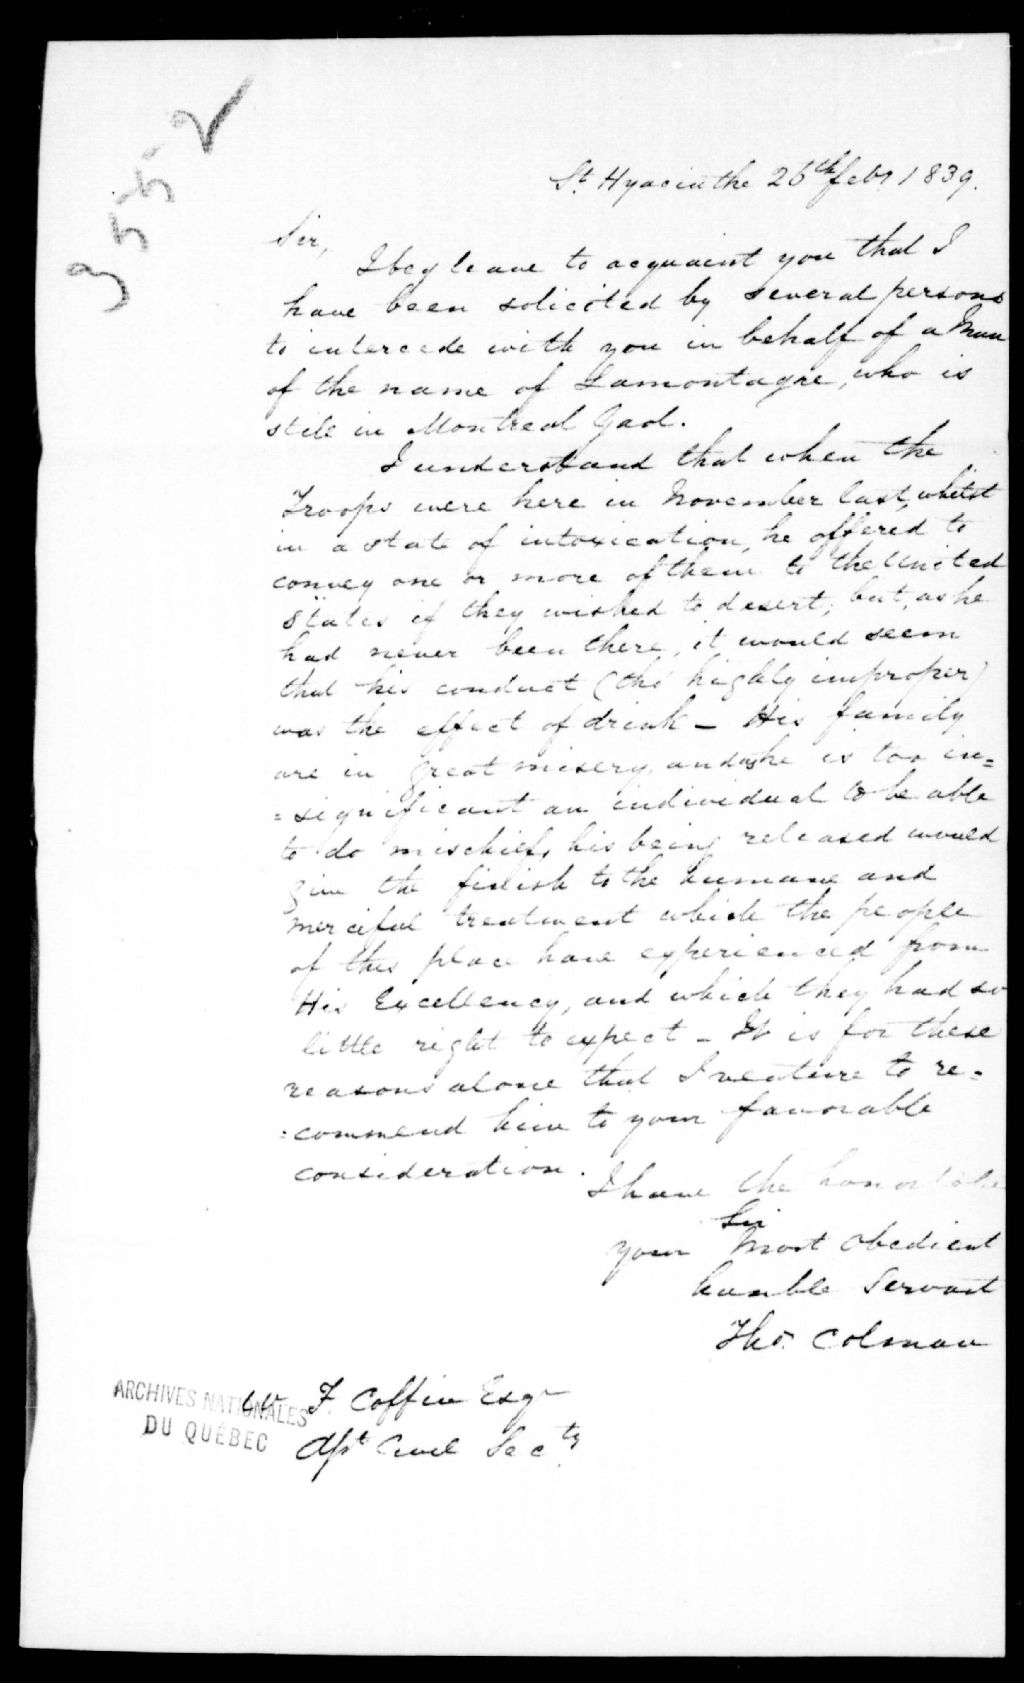 3552
St. Hyacinthe 26th feby 1839.
Sir,
I beg leave to acquaint you that I
have been solicited by several persons
to intercede with you in behalf of a Man
of the name of Lamontagne, who is
still in Montreal Gaol.
I understand that when the
Troops were here in November last, whilst
in a state of intoxication, he offered to
convey one or more of them to the United
States if they wished to desert; but, as he
had never been there, it would seem
that his conduct (tho' highly improper)
was the effect of drink _ His family
are in great misery, and as he is too in=
=significant an individual to be able
to do mischief, his being released would
give the finish to the humane and
merciful treatment which the people
of this place have experienced from
His Excellency, and which they had so
little right to expect _ It is for these
reasons alone that I venture to re=
=commend him to your favorable
consideration.
I have the honor to be
Sir
your Most Obedient
humble Servant
Thos. Colman
W. F. Coffin Esqr
Asst Civil Secty
ARCHIVES NATIONALES
DU QUÉBEC